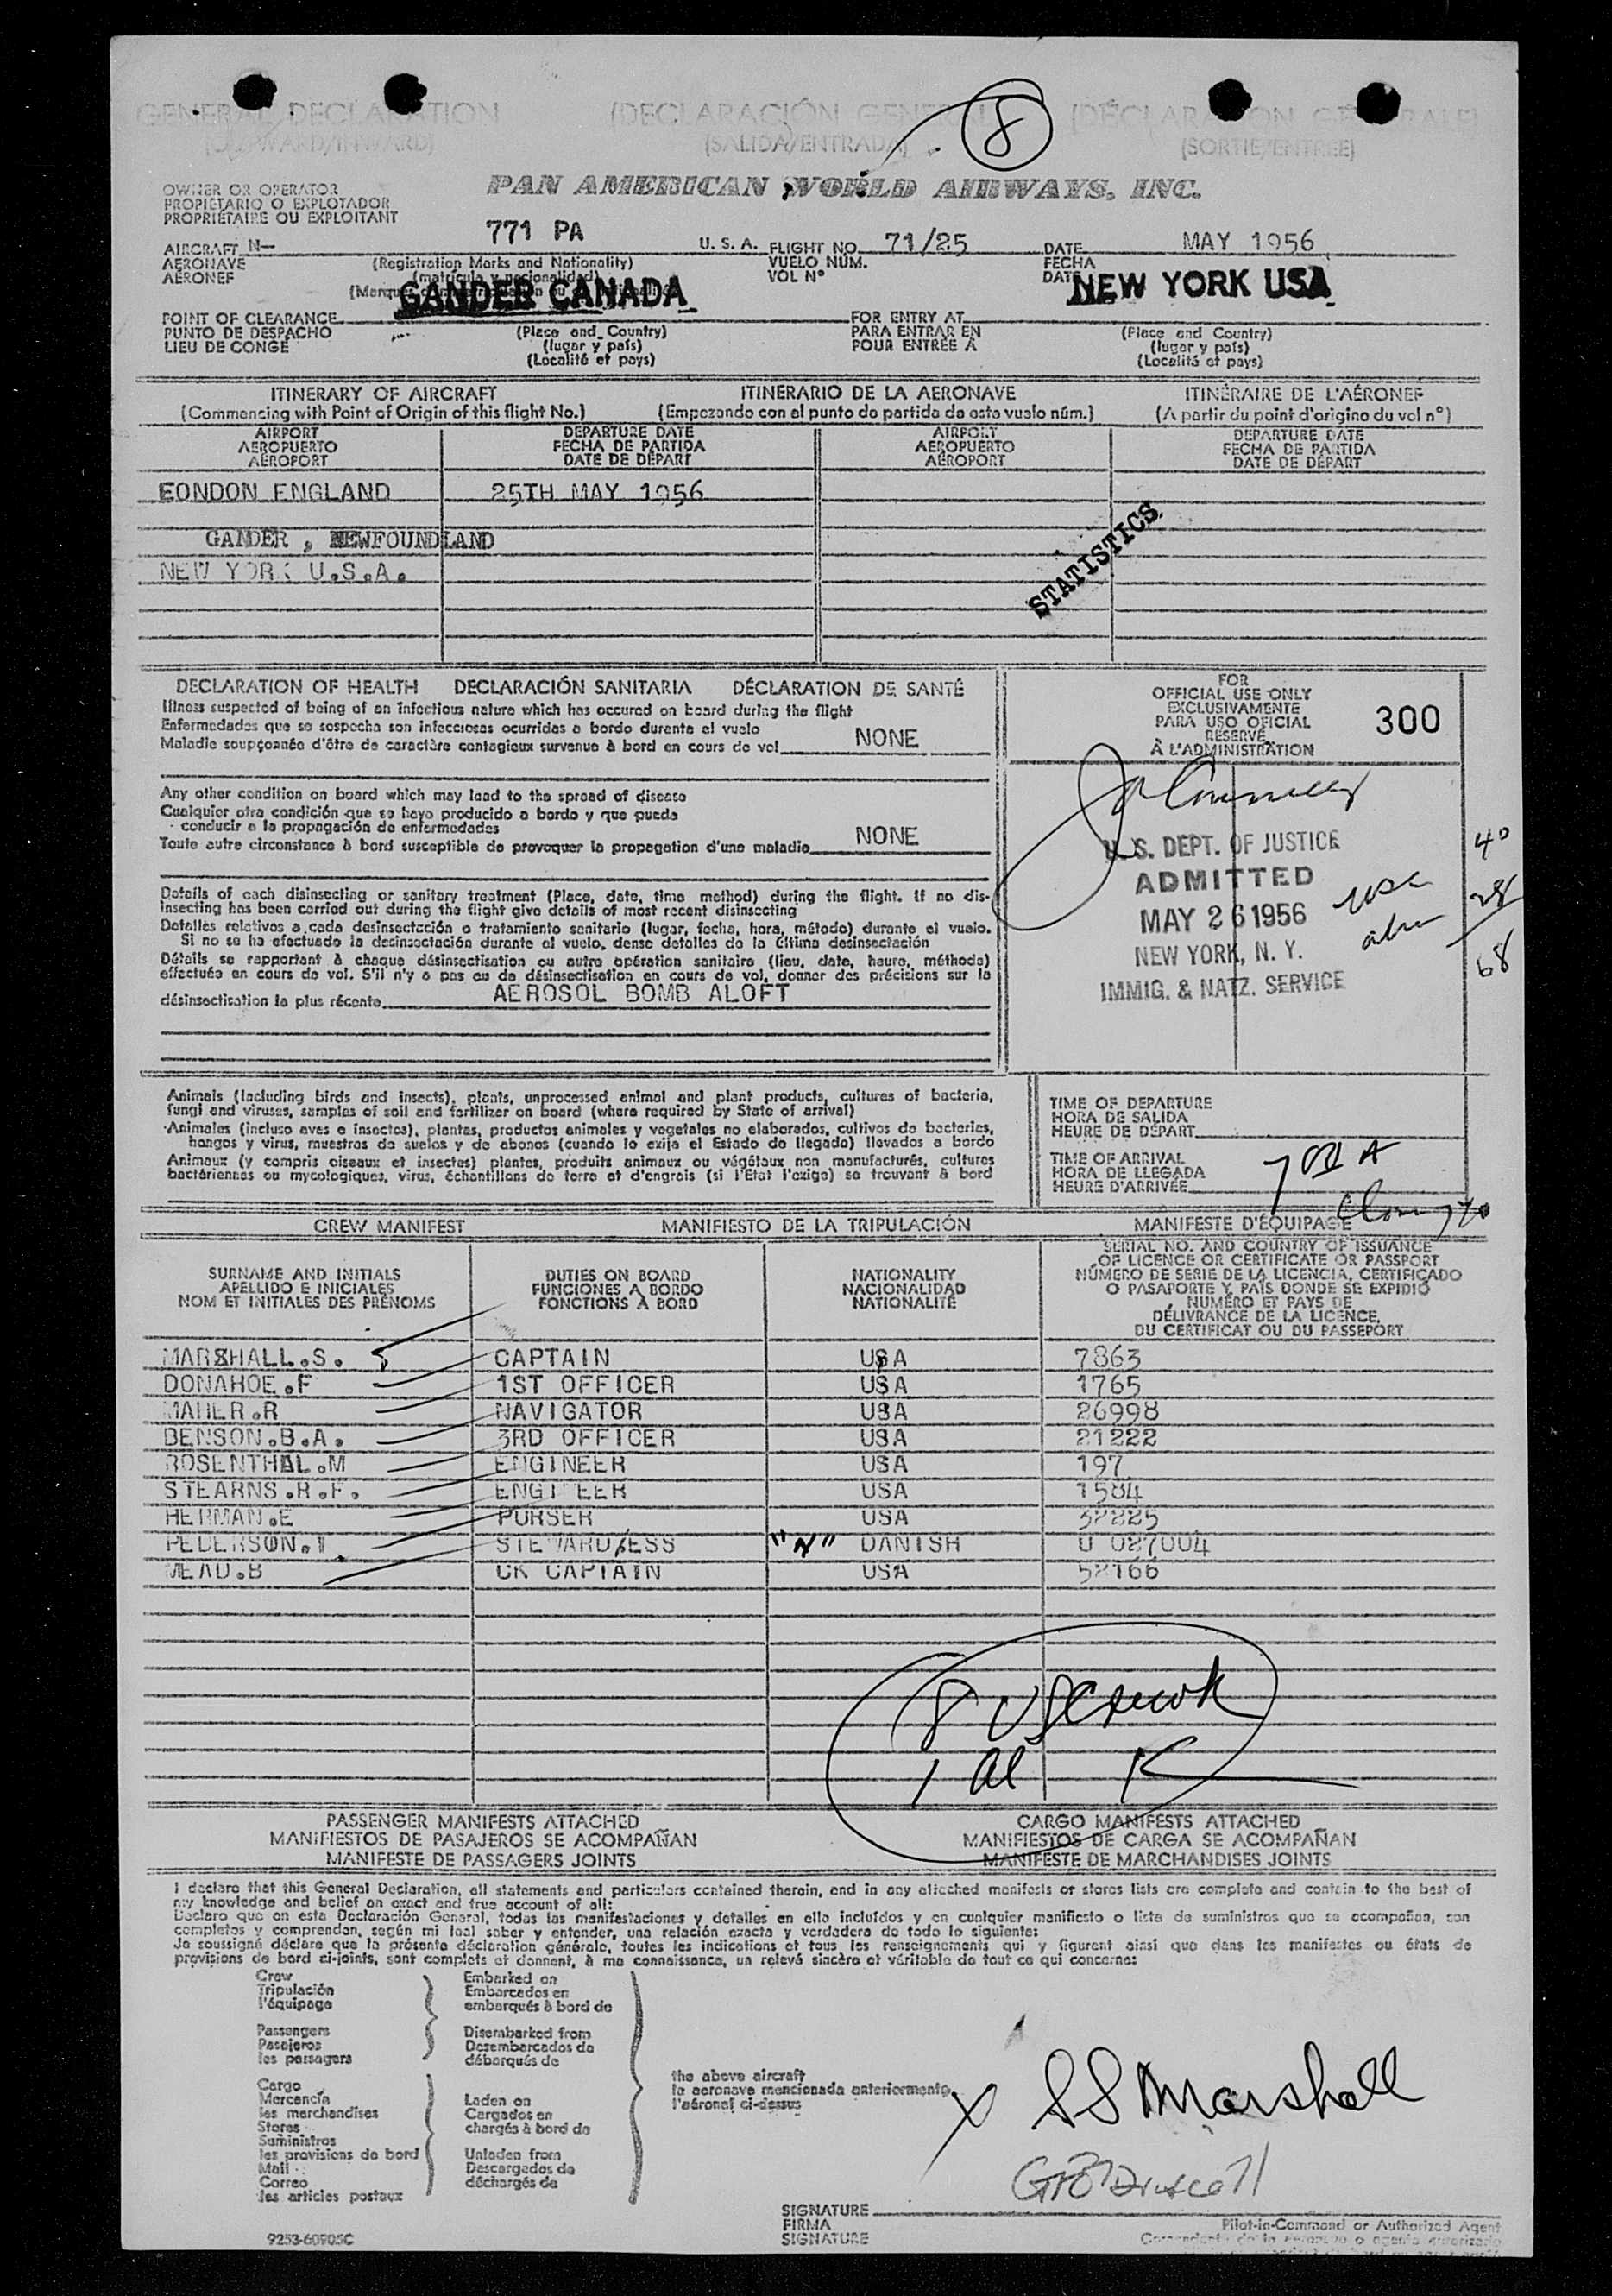 8
GENERAL DECLARATION (DECLARACIÓN GENERAL (DÉCLARATION GÉNÉRALE)
(OUTWARD/INWARD) (SALIDA/ENTRADA) (SORTIE/ENTRÉE)
OWNER OR OPERATOR
PROPIETARIO O EXPLOTADOR
PROPRIÉTAIRE OU EXPLOITANT
PAN AMERICAN WORLD AIRWAYS, INC.
AIRCRAFT N— 771 PA U. S. A. FLIGHT NO. 71/25 DATE MAY 1956
AERONAVE (Registration Marks and Nationality) VUELO NÚM. FECHA
AÉRONEF (matrícula y nacionalidad) VOL Nº DATE
GANDER CANADA NEW YORK USA
POINT OF CLEARANCE FOR ENTRY AT
PUNTO DE DESPACHO (Place and Country) PARA ENTRAR EN (Place and Country)
LIEU DE CONGÉ (lugar y país) POUR ENTRÉE A (lugar y país)
(Localité et pays) (Localité et pays)
ITINERARY OF AIRCRAFT ITINERARIO DE LA AERONAVE ITINÉRAIRE DE L'AÉRONEF
(Commencing with Point of Origin of this flight No.) (Empezando con el punto de partida de este vuelo núm.) (A partir du point d'origine du vol nº)
AIRPORT DEPARTURE DATE AIRPORT DEPARTURE DATE
AEROPUERTO FECHA DE PARTIDA AEROPUERTO FECHA DE PARTIDA
AÉROPORT DATE DE DÉPART AÉROPORT DATE DE DÉPART
EONDON ENGLAND 25TH MAY 1956
GANDER , NEWFOUNDLAND
NEW YORK U.S.A.
STATISTICS
DECLARATION OF HEALTH DECLARACIÓN SANITARIA DÉCLARATION DE SANTÉ
Illness suspected of being of an infectious nature which has occured on board during the flight
Enfermedades que se sospecha son infecciosas ocurridas a bordo durante el vuelo
Maladie soupçonnée d'être de caractère contagieux survenue à bord en cours de vol NONE
Any other condition on board which may lead to the spread of disease
Cualquier otra condición que se haya producido a bordo y que pueda
conducir a la propagación de enfermedades
Toute autre circonstance à bord susceptible de provoquer la propagation d'une maladie NONE
Details of each disinsecting or sanitary treatment (Place, date, time method) during the flight. If no dis-
insecting has been carried out during the flight give details of most recent disinsecting
Detalles relativos a cada desinsectación o tratamiento sanitario (lugar, fecha, hora, método) durante el vuelo.
Si no se ha efectuado la desinsectación durante el vuelo, dense detalles de la última desinsectación
Détails se rapportant à chaque désinsectisation ou autre opération sanitaire (lieu, date, heure, méthode)
effectuée en cours de vol. S'il n'y a pas eu de désinsectisation en cours de vol, donner des précisions sur la
désinsectisation la plus récente AEROSOL BOMB ALOFT
FOR
OFFICIAL USE ONLY
EXCLUSIVAMENTE
PARA USO OFICIAL
RÉSERVÉ
À L'ADMINISTRATION
300
U. S. DEPT. OF JUSTICE
ADMITTED
MAY 26 1956
NEW YORK, N. Y.
IMMIG. & NATZ. SERVICE
usc 40
28
68
Animals (including birds and insects), plants, unprocessed animal and plant products, cultures of bacteria,
fungi and viruses, samples of soil and fertilizer on board (where required by State of arrival)
Animales (incluso aves e insectos), plantas, productos animales y vegetales no elaborados, cultivos de bacterias,
hongos y virus, muestras de suelos y de abonos (cuando lo exija el Estado de llegada) llevados a bordo
Animaux (y compris oiseaux et insectes) plantes, produits animaux ou végétaux non manufacturés, cultures
bactériennes ou mycologiques, virus, échantillons de terre et d'engrais (si l'Etat l'exige) se trouvant à bord
TIME OF DEPARTURE
HORA DE SALIDA
HEURE DE DÉPART
TIME OF ARRIVAL
HORA DE LLEGADA
HEURE D'ARRIVÉE
CREW MANIFEST MANIFIESTO DE LA TRIPULACIÓN MANIFESTE D'ÉQUIPAGE
SURNAME AND INITIALS
APELLIDO E INICIALES
NOM ET INITIALES DES PRÉNOMS
DUTIES ON BOARD
FUNCIONES A BORDO
FONCTIONS À BORD
NATIONALITY
NACIONALIDAD
NATIONALITÉ
SERIAL NO. AND COUNTRY OF ISSUANCE
OF LICENCE OR CERTIFICATE OR PASSPORT
NÚMERO DE SERIE DE LA LICENCIA, CERTIFICADO
O PASAPORTE Y PAÍS DONDE SE EXPIDIÓ
NUMÉRO ET PAYS DE
DÉLIVRANCE DE LA LICENCE,
DU CERTIFICAT OU DU PASSEPORT
MARSHALL.S. CAPTAIN USA 7863
DONAHOE.F 1ST OFFICER USA 1765
MAHER.R NAVIGATOR USA 26998
BENSON.B.A. 3RD OFFICER USA 21222
ROSENTHAL.M ENGINEER USA 197
STEARNS.R.F. ENGINEER USA 1584
HERMAN.E PURSER USA 32225
PEDERSON.I STEWARD/ESS "N" DANISH U 027004
MEAD.B CK CAPTAIN USA 52166
8 USC
1 al
PASSENGER MANIFESTS ATTACHED CARGO MANIFESTS ATTACHED
MANIFIESTOS DE PASAJEROS SE ACOMPAÑAN MANIFIESTOS DE CARGA SE ACOMPAÑAN
MANIFESTE DE PASSAGERS JOINTS MANIFESTE DE MARCHANDISES JOINTS
I declare that this General Declaration, all statements and particulars contained therein, and in any attached manifests or stores lists are complete and contain to the best of
my knowledge and belief an exact and true account of all:
Declaro que en esta Declaración General, todas las manifestaciones y detalles en ella incluídos y en cualquier manifiesto o lista de suministros que se acompañan, son
completos y comprenden, según mi leal saber y entender, una relación exacta y verdadera de todo lo siguiente:
Je soussigné déclare que la présente déclaration générale, toutes les indications et tous les renseignements qui y figurent ainsi que dans les manifestes ou états de
provisions de bord ci-joints, sont complets et donnent, à ma connaissance, un relevé sincère et véritable de tout ce qui concerne:
Crew
Tripulación
l'équipage
Passengers
Pasajeros
les passagers
Cargo
Mercancía
les marchandises
Stores
Suministros
les provisions de bord
Mail
Correo
les articles postaux
Embarked on
Embarcados en
embarqués à bord de
Disembarked from
Desembarcados de
débarqués de
Laden on
Cargados en
chargés à bord de
Unladen from
Descargados de
déchargés de
the above aircraft
la aeronave mencionada anteriormente
l'aéronef ci-dessus
X SS Marshall
SIGNATURE
FIRMA
SIGNATURE
Pilot-in-Command or Authorized Agent
9253-60905C